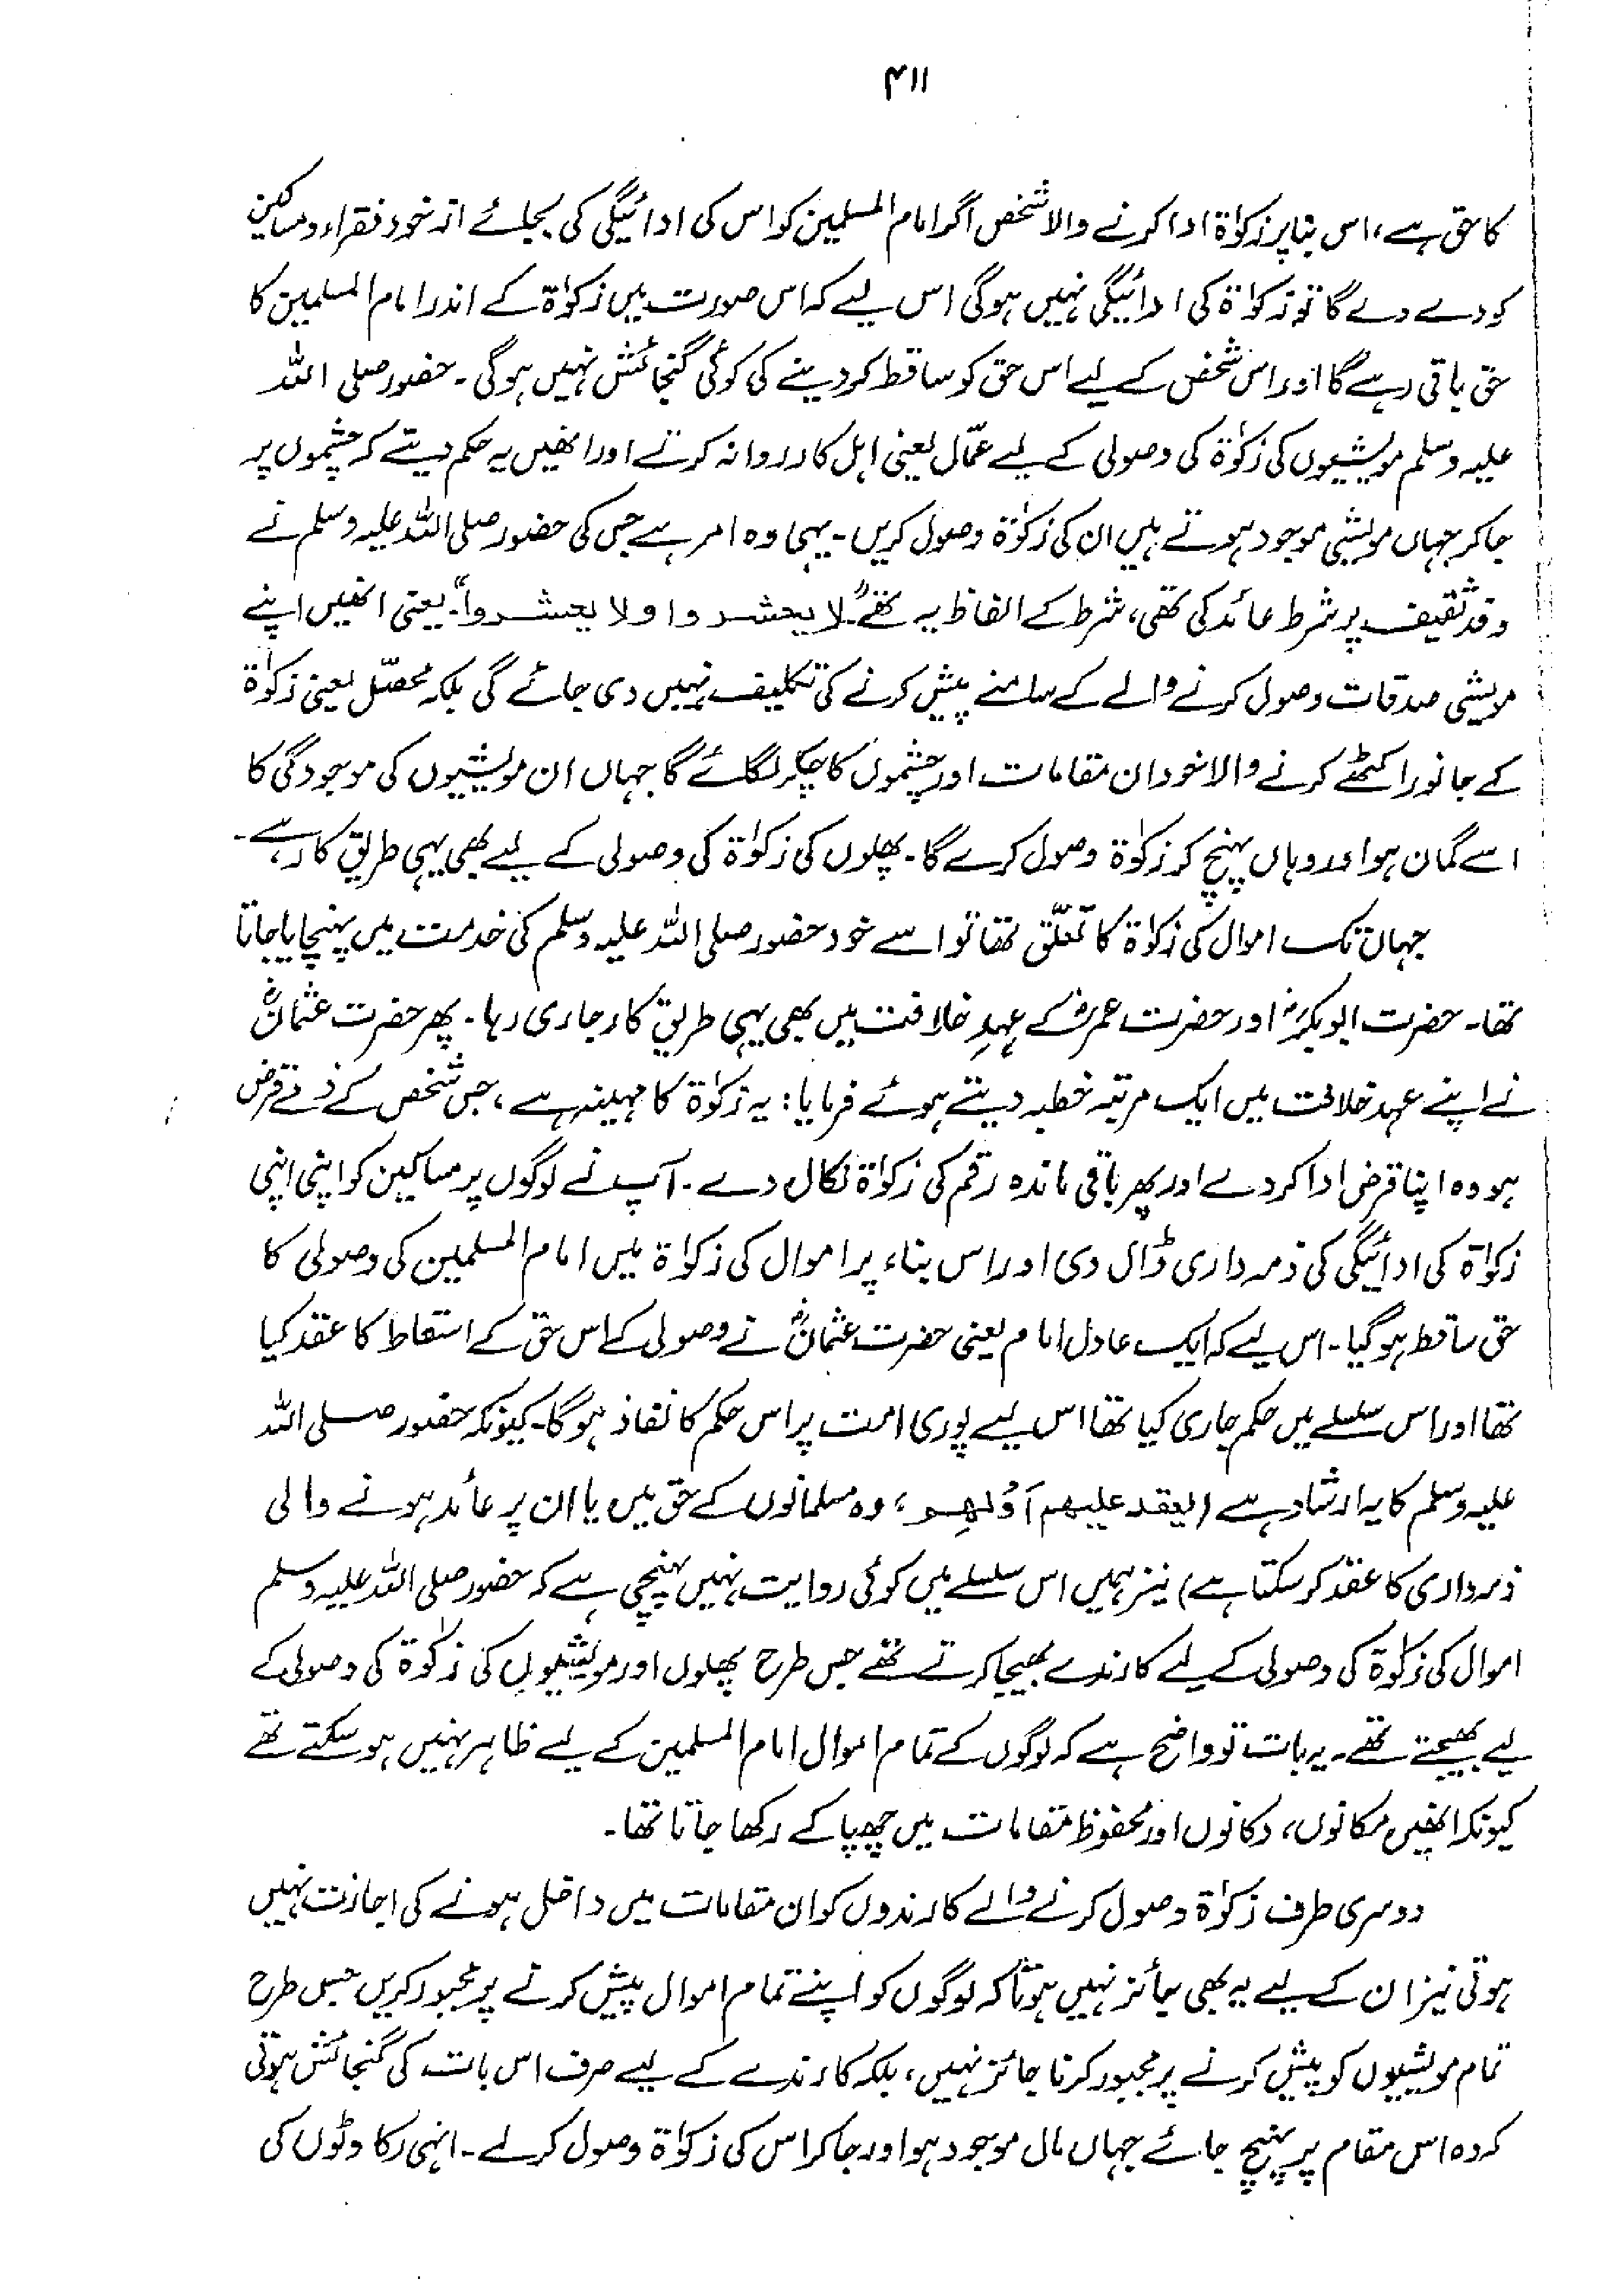 ۴۱۱
کا حق ہے، اس بنا پر زکوٰۃ ادا کرنے والا شخص اگر امام المسلمین کو اس کی ادائیگی کی بجائے از خود فقراء و مساکین
کو دے دے گا تو زکوٰۃ کی ادائیگی نہیں ہوگی اس لیے کہ اس صورت میں زکوٰۃ کے اندر امام المسلمین کا
حق باقی رہے گا اور اس شخص کے لیے اس حق کو ساقط کر دینے کی کوئی گنجائش نہیں ہوگی۔ حضور صلی اللہ
علیہ وسلم مویشیوں کی زکوٰۃ کی وصولی کے لیے عمّال یعنی اہل کار روانہ کرتے اور انھیں یہ حکم دیتے کہ چشموں پر
جا کر جہاں مویشی موجود ہوتے ہیں ان کی زکوٰۃ وصول کریں۔ یہی وہ امر ہے جس کی حضور صلی اللہ علیہ وسلم نے
وفد ثقیف پر شرط عائد کی تھی، شرط کے الفاظ یہ تھے "لا یحشروا ولا یعشروا"۔ یعنی انھیں اپنے
مویشی صدقات وصول کرنے والے کے سامنے پیش کرنے کی تکلیف نہیں دی جائے گی بلکہ محصّل یعنی زکوٰۃ
کے جانور اکٹھے کرنے والا خود ان مقامات اور چشموں کا چکر لگائے گا جہاں ان مویشیوں کی موجودگی کا
اسے گمان ہو اور وہاں پہنچ کر زکوٰۃ وصول کرے گا۔ پھلوں کی زکوٰۃ کی وصولی کے لیے بھی یہی طریق کار ہے۔
جہاں تک اموال کی زکوٰۃ کا تعلّق تھا تو اسے خود حضور صلی اللہ علیہ وسلم کی خدمت میں پہنچایا جاتا
تھا۔ حضرت ابوبکرؓ اور حضرت عمرؓ کے عہدِ خلافت میں بھی یہی طریق کار جاری رہا۔ پھر حضرت عثمانؓ
نے اپنے عہد خلافت میں ایک مرتبہ خطبہ دیتے ہوئے فرمایا: یہ زکوٰۃ کا مہینہ ہے، جس شخص کے ذمے قرض
ہو وہ اپنا قرض ادا کر دے اور پھر باقی ماندہ رقم کی زکوٰۃ نکال دے۔ آپ نے لوگوں پر مساکین کو اپنی اپنی
زکوٰۃ کی ادائیگی کی ذمہ داری ڈال دی اور اس بناء پر اموال کی زکوٰۃ میں امام المسلمین کی وصولی کا
حق ساقط ہوگیا۔ اس لیے کہ ایک عادل امام یعنی حضرت عثمانؓ نے وصولی کے اس حق کے اسقاط کا عقد کیا
تھا اور اس سلسلے میں حکم جاری کیا تھا اس لیے پوری امت پر اس حکم کا نفاذ ہوگا۔ کیونکہ حضور صلی اللہ
علیہ وسلم کا یہ ارشاد ہے (یعقد علیھم اَوّلھم، وہ مسلمانوں کے حق میں یا ان پر عائد ہونے والی
ذمہ داری کا عقد کر سکتا ہے) نیز ہمیں اس سلسلے میں کوئی روایت نہیں پہنچی ہے کہ حضور صلی اللہ علیہ وسلم
اموال کی زکوٰۃ کی وصولی کے لیے کارندے بھیجا کرتے تھے جس طرح پھلوں اور مویشیوں کی زکوٰۃ کی وصولی کے
لیے بھیجتے تھے۔ یہ بات تو واضح ہے کہ لوگوں کے تمام اموال امام المسلمین کے لیے ظاہر نہیں ہو سکتے تھے
کیونکہ انھیں مکانوں، دکانوں اور محفوظ مقامات میں چھپا کے رکھا جاتا تھا۔
دوسری طرف زکوٰۃ وصول کرنے والے کارندوں کو ان مقامات میں داخل ہونے کی اجازت نہیں
ہوتی نیز ان کے لیے یہ بھی جائز نہیں ہوتا کہ لوگوں کو اپنے تمام اموال پیش کرنے پر مجبور کریں جس طرح
تمام مویشیوں کو پیش کرنے پر مجبور کرنا جائز نہیں، بلکہ کارندے کے لیے صرف اس بات کی گنجائش ہوتی
کہ وہ اس مقام پر پہنچ جائے جہاں مال موجود ہو اور جا کر اس کی زکوٰۃ وصول کر لے۔ انہی رکاوٹوں کی